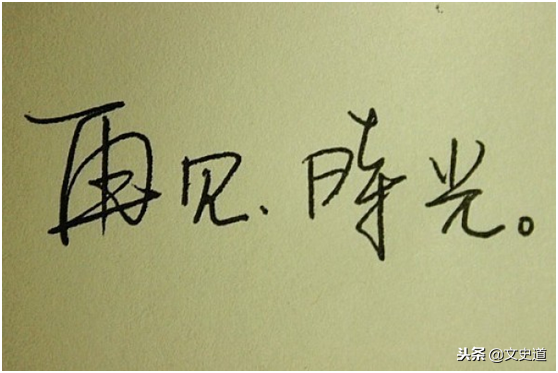 再见、時光。
头条 @文史道